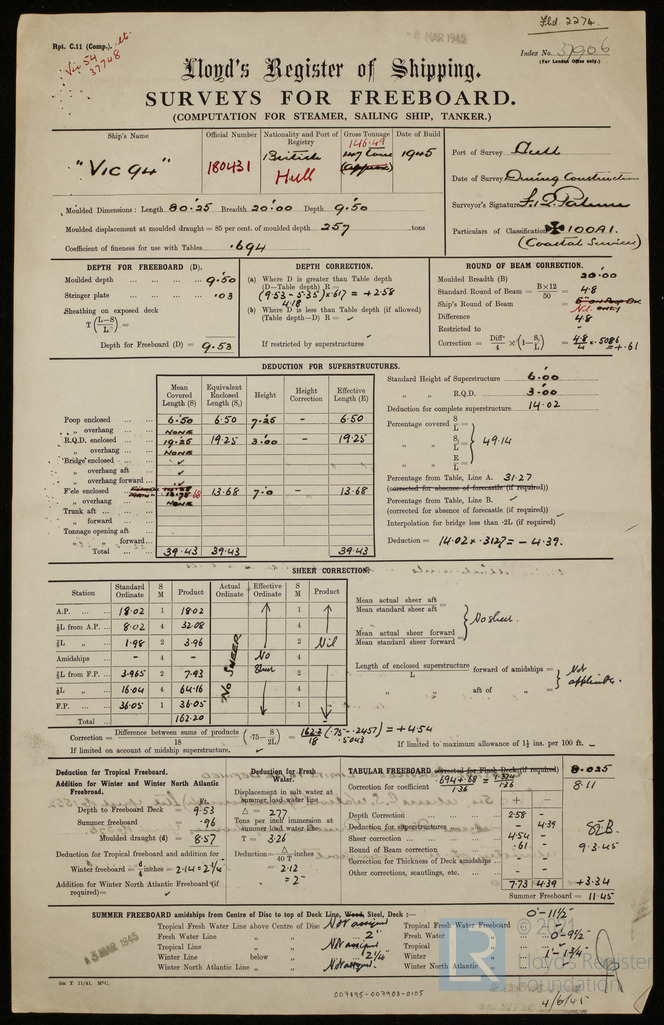 Lbd. 2274
Rpt. C.11 (Comp.).
Vic 54
37748
-8 MAR 1945
Index No. 37906
(For London Office only.)
Lloyd's Register of Shipping.
SURVEYS FOR FREEBOARD.
(COMPUTATION FOR STEAMER, SAILING SHIP, TANKER.)
Ship's Name Official Number Nationality and Port of Registry Gross Tonnage Date of Build
"VIC 94" 180431 British Hull 146.49 147 tons (approx) 1945
Port of Survey Hull
Date of Survey During Construction
Surveyor's Signature
Particulars of Classification ✠ 100A1.
(Coastal Service)
Moulded Dimensions: Length 80.25 Breadth 20.00 Depth 9.50
Moulded displacement at moulded draught = 85 per cent. of moulded depth 257 tons
Coefficient of fineness for use with Tables .694
DEPTH FOR FREEBOARD (D).
Moulded depth 9.50
Stringer plate .03
Sheathing on exposed deck
T(L-S/L) =
Depth for Freeboard (D) = 9.53
DEPTH CORRECTION.
(a) Where D is greater than Table depth
(D—Table depth) R =
(9.53 - 5.35) × .617 = +2.58
4.18
(b) Where D is less than Table depth (if allowed)
(Table depth—D) R = ✓
If restricted by superstructures
ROUND OF BEAM CORRECTION.
Moulded Breadth (B) 20.00
Standard Round of Beam = B×12/50 = 4.8
Ship's Round of Beam = Nil.
Difference 4.8
Restricted to
Correction = Diffce/4 × (1 - S₁/L) = 4.8/4 × .5086 = +.61
DEDUCTION FOR SUPERSTRUCTURES.
Mean Covered Length (S) Equivalent Enclosed Length (S₁) Height Height Correction Effective Length (E)
Poop enclosed 6.50 6.50 7.25 - 6.50
„ overhang NONE
R.Q.D. enclosed 19.25 19.25 3.00 - 19.25
„ overhang NONE
Bridge enclosed ✓
„ overhang aft ✓
„ overhang forward ✓
F'cle enclosed 13.68 7.0 - 13.68
„ overhang NONE
Trunk aft
„ forward
Tonnage opening aft
„ „ forward
Total 39.43 39.43 39.43
Standard Height of Superstructure 6.00
„ „ R.Q.D. 3.00
Deduction for complete superstructure 14.02
Percentage covered S/L =
„ „ S₁/L = 49.14
„ „ E/L =
Percentage from Table, Line A. 31.27
(corrected for absence of forecastle (if required))
Percentage from Table, Line B. ✓
(corrected for absence of forecastle (if required))
Interpolation for bridge less than ·2L (if required)
Deduction = 14.02 × .3127 = - 4.39.
SHEER CORRECTION.
Station Standard Ordinate S M Product Actual Ordinate Effective Ordinate S M Product
A.P. 18.02 1 18.02 1
⅙L from A.P. 8.02 4 32.08 4
⅓L „ 1.98 2 3.96 2 Nil
Amidships - 4 - 4
⅓L from F.P. 3.965 2 7.93 2
⅙L „ 16.04 4 64.16 4
F.P. 36.05 1 36.05 1
Total 162.20
NO SHEER
No Sheer
Mean actual sheer aft
Mean standard sheer aft =
Mean actual sheer forward
Mean standard sheer forward = No sheer.
Length of enclosed superstructure/L forward of amidships =
„ „ aft of „ = Not applicable.
Correction = Difference between sums of products/18 (·75 - S/2L) = 162.2/18 (.75 - .2457) = +4.54
.5043
If limited on account of midship superstructure. ✓
If limited to maximum allowance of 1½ ins. per 100 ft. –
Deduction for Tropical Freeboard.
Addition for Winter and Winter North Atlantic Freeboard.
Ft.
Depth to Freeboard Deck = 9.53
Summer freeboard = .96
Moulded draught (d) = 8.57
Deduction for Tropical freeboard and addition for
Winter freeboard = d/4 inches = 2.14 = 2¼"
Addition for Winter North Atlantic Freeboard (if required) = ✓
Deduction for Fresh Water.
Displacement in salt water at summer load water line
Δ = 277
Tons per inch immersion at summer load water line
T = 3.26
Deduction = Δ/40 T inches
= 2.12
= 2"
TABULAR FREEBOARD corrected for Flush Deck (if required) 8.025
Correction for coefficient .694+.68/1.36 = 1.374/1.36 8.11
+ -
Depth Correction 2.58 -
Deduction for superstructures - 4.39
Sheer correction 4.54 -
Round of Beam correction .61 -
Correction for Thickness of Deck amidships - -
Other corrections, scantlings, etc. - -
7.73 4.39 +3.34
Summer Freeboard = 11.45
9.3.45
SUMMER FREEBOARD amidships from Centre of Disc to top of Deck Line, Wood, Steel, Deck:— 0'-11½"
Tropical Fresh Water Line above Centre of Disc Not assigned
Fresh Water Line „ „ 2"
Tropical Line „ „ Not assigned
Winter Line below „ 2¼"
Winter North Atlantic Line „ „ Not assigned.
Tropical Fresh Water Freeboard -
Fresh Water „ 0'-9½"
Tropical „ -
Winter „ 1'-1¾"
Winter North Atlantic „ -
13 MAR 1945
5m T 11/41. McC.
007895-007908-0105
4/6/45
© 2021
Lloyd's Register
Foundation